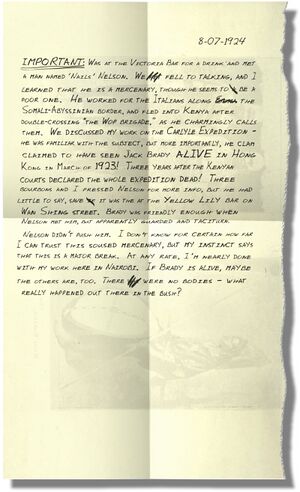 8-07-1924
IMPORTANT: Was at the Victoria Bar for a drink and met
a man named 'Nails' Nelson. We fell to talking, and I
learned that he is a mercenary, though he seems to be a
poor one. He worked for the Italians along the
Somali-Abyssinian border, and fled into Kenya after
double-crossing "the Wop brigade," as he charmingly calls
them. We discussed my work on the Carlyle Expedition -
he was familiar with the subject, but more importantly, he clam
claimed to have seen Jack Brady ALIVE in Hong
Kong in March of 1923! Three years after the Kenyan
courts declared the whole expedition dead! Three
bourbons and I pressed Nelson for more info, but he had
little to say, save it was the at the Yellow Lily Bar on
Wan Shing street. Brady was friendly enough when
Nelson met him, but apparently guarded and taciturn.
Nelson didn't push him. I don't know for certain how far
I can trust this soused mercenary, but my instinct says
that this is a major break. At any rate, I'm nearly done
with my work here in Nairobi. If Brady is alive, maybe
the others are, too. There were no bodies - what
really happened out there in the bush?